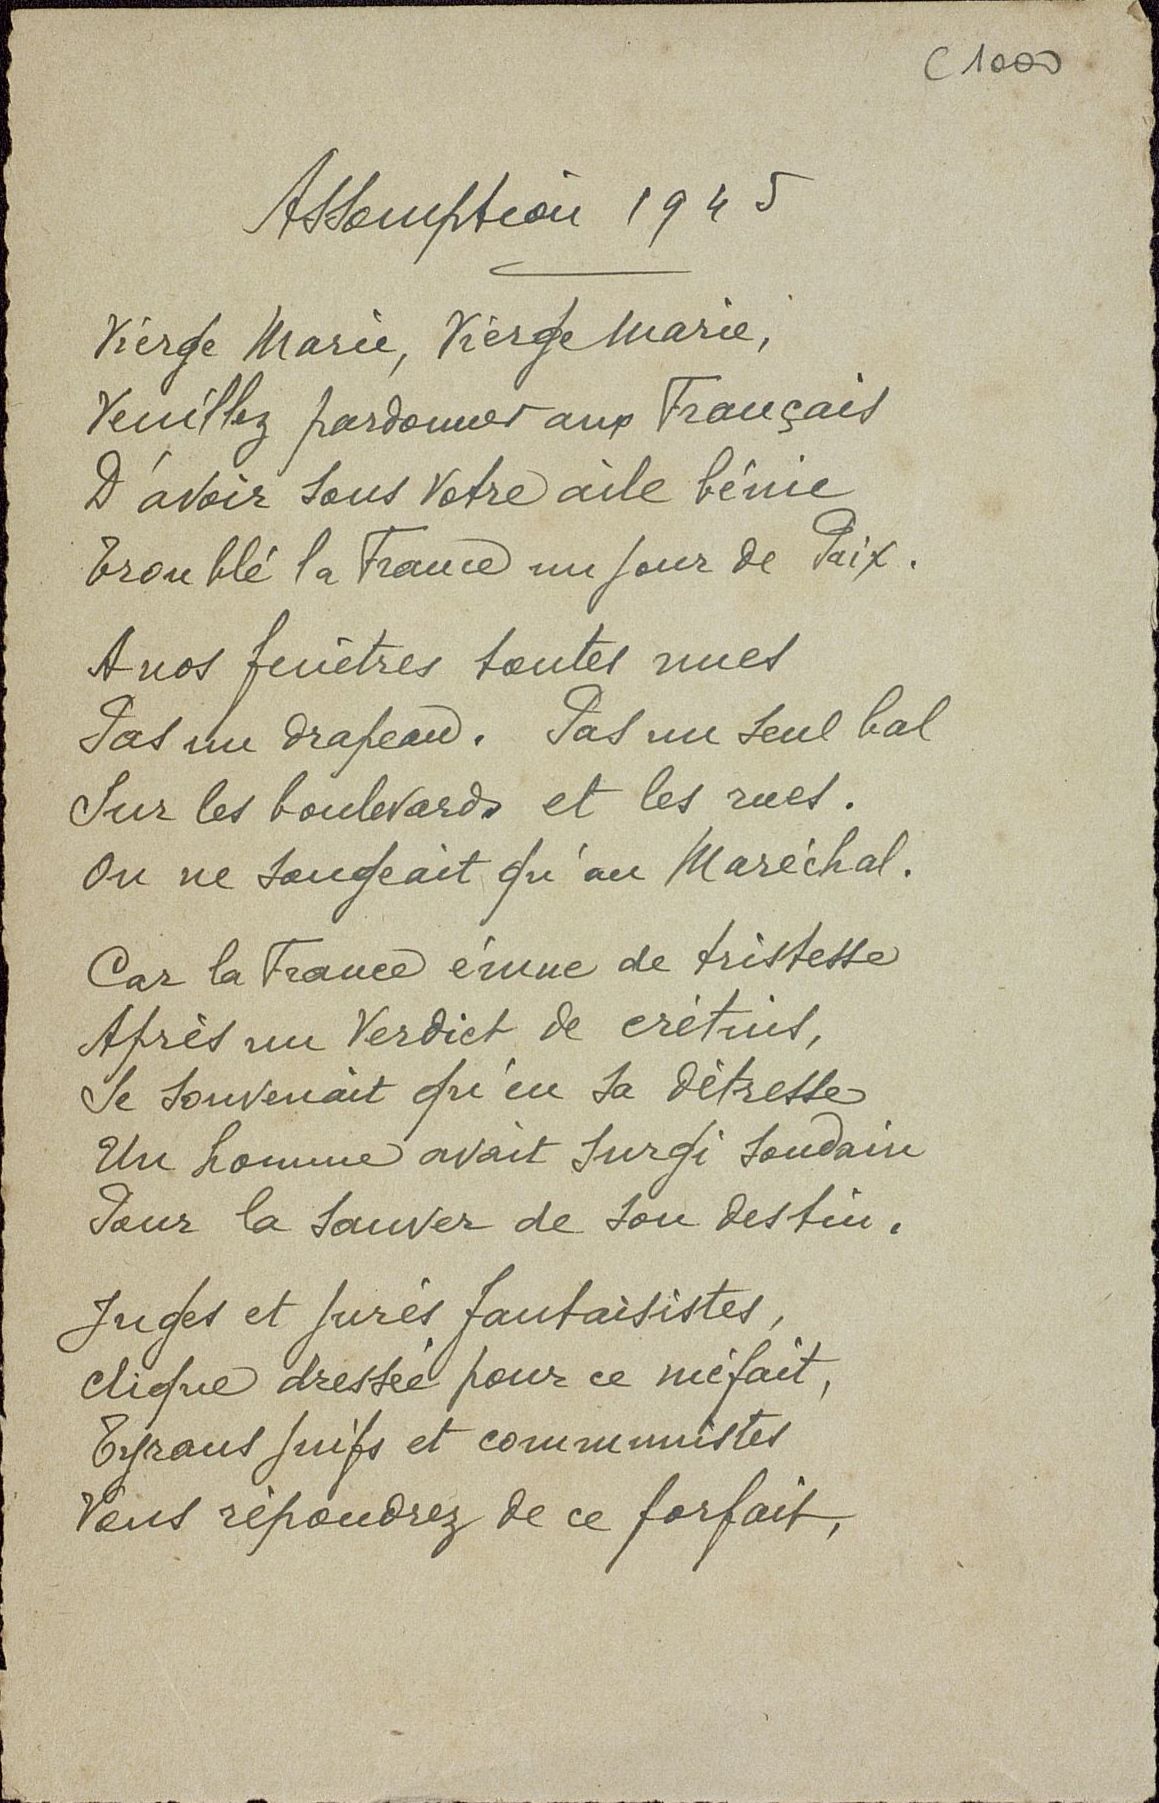 C 1000
Assomption 1945
Vierge Marie, Vierge Marie,
Veuillez pardonner aux Français
D'avoir sous votre aile bénie
Troublé la France un jour de Paix.
A nos fenêtres toutes nues
Pas un drapeau. Pas un seul bal
Sur les boulevards et les rues.
On ne songeait qu'au Maréchal.
Car la France émue de tristesse
Après un Verdict de crétins,
Se souvenait qu'en sa détresse
Un homme avait surgi soudain
Pour la sauver de son destin.
Juges et jurés fantaisistes,
clique dressée pour ce méfait,
Tyrans juifs et communistes
Vous répondrez de ce forfait,